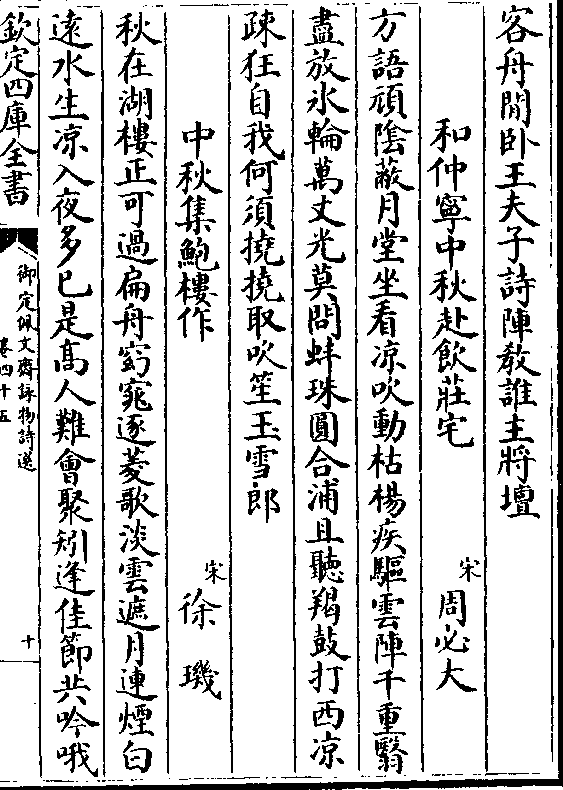 客舟閒卧王夫子詩陣教誰主將壇
和仲寧中秋赴飲莊宅
宋周必大
方語頑陰蔽月堂坐看凉吹動枯楊疾驅雲陣千重翳
盡放氷輪萬丈光莫問蚌珠圓合浦且聽羯鼓打西凉
疎狂自我何須撓撓取吹笙玉雪郎
中秋集鮑樓作
宋徐璣
秋在湖樓正可過扁舟窈窕逐菱歌淡雲遮月連煙白
遠水生凉入夜多已是髙人難會聚矧逢佳節共吟哦
欽定四庫全書
御定佩文齋詠物詩選
卷四十五
十